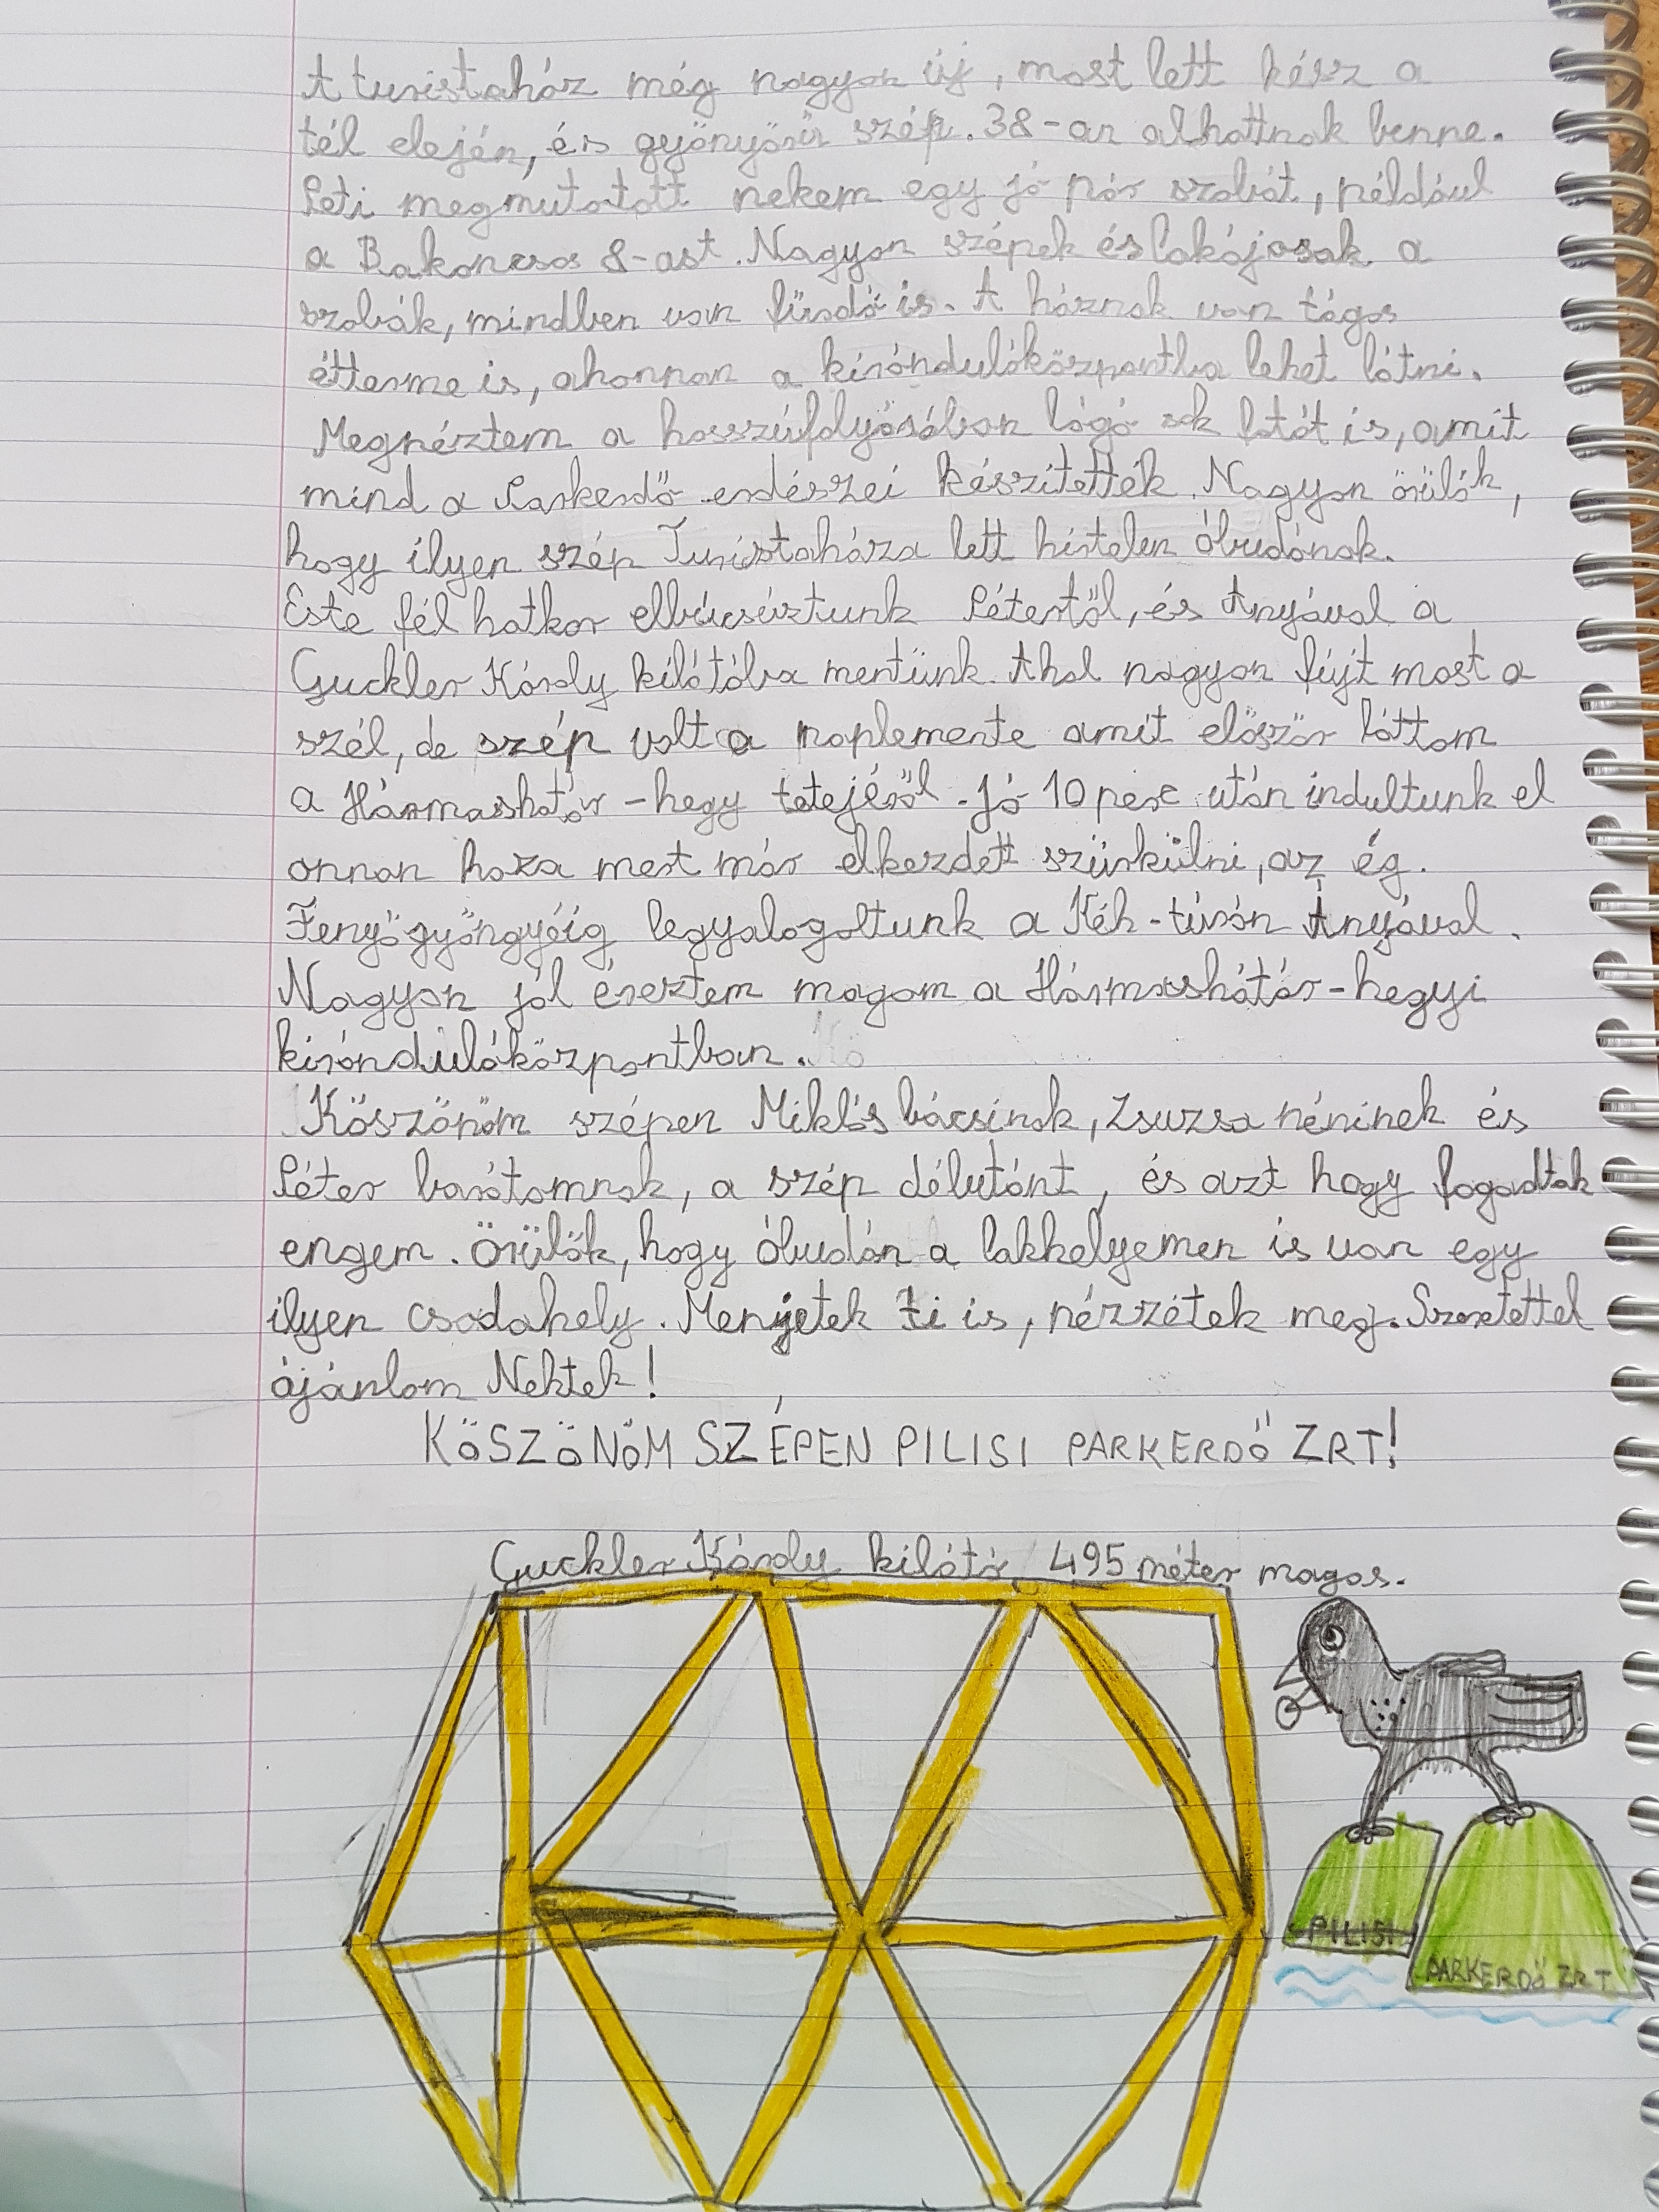 A turistaház még nagyon új, most lett kész a
tél elején, és gyönyörű szép. 38-an alhattnak benne.
Peti megmutatott nekem egy jó pár szobát, például
a Bakoncsos 8-ast. Nagyon szépek és lakájosak a
szobák, mindben van fürdő is. A háznak van tágas
étterme is, ahonnan a kirándulóközpontba lehet látni.
Megnéztem a hosszúfolyósóban lógó sok fotót is, amit
mind a Parkerdő erdészei készítették. Nagyon örülök,
hogy ilyen szép Turistaháza lett hirtelen Óbudának.
Este fél hatkor elbúcsúztunk Pétertől, és Anyával a
Guckler Károly kilátóba mentünk. Ahol nagyon fújt most a
szél, de szép volt a naplemente amit először láttam
a Hármashatár-hegy tetejéről. Jó 10 perc után indultunk el
onnan haza mert már elkezdett szürkülni, az ég.
Fenyőgyöngyéig legyalogoltunk a Kék-túrán Anyával.
Nagyon jól éreztem magam a Hármashátár-hegyi
kirándulóközpontban.
Köszönöm szépen Miklós bácsinak, Zsuzsa néninek és
Péter barátomnak, a szép délutánt, és azt hogy fogadtak
engem. Örülök, hogy Óbudán a lakhelyemen is van egy
ilyen csodahely. Menjetek ti is, nézzétek meg. Szeretettel
ájánlom Nektek!
KÖSZÖNÖM SZÉPEN PILISI PARKERDŐ ZRT!
Guckler Károly kilátó 495 méter magas.
PILISI
PARKERDŐ ZRT